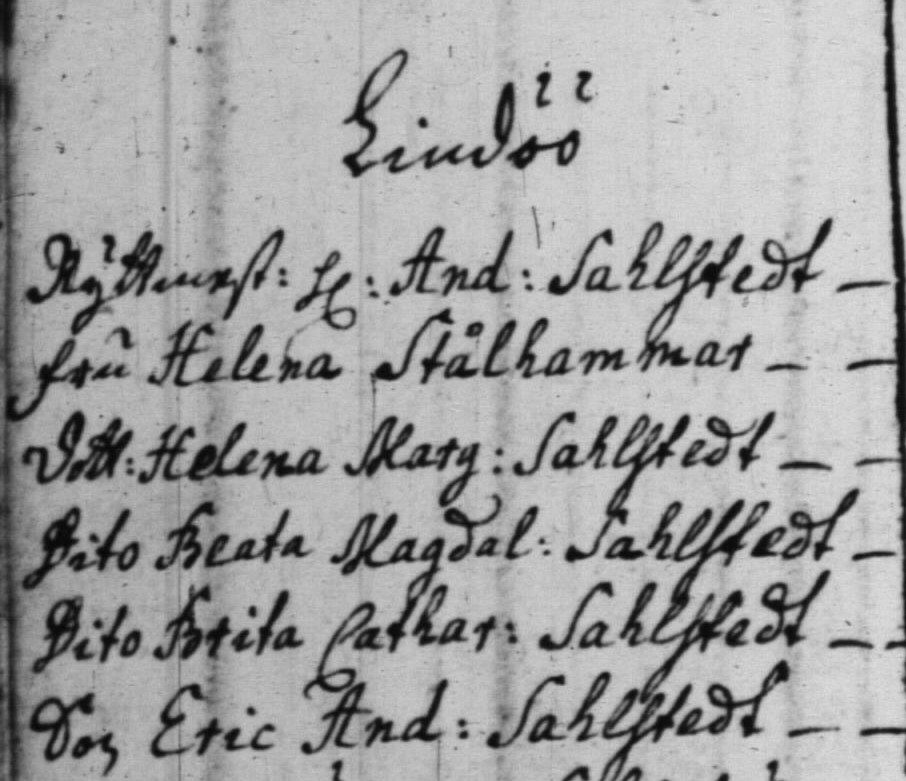 Lindöö
Ryttmest: H: And: Sahlstedt —
fru Helena Stålhammar — —
Dott: Helena Marg: Sahlstedt — —
Dito Beata Magdal: Sahlstedt —
Dito Brita Cathar: Sahlstedt — —
Son Eric And: Sahlstedt — —